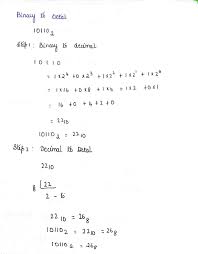 Binary to Octal
10110₂
Step 1 : Binary to decimal
1 0 1 1 0
= 1×2⁴ + 0×2³ + 1×2² + 1×2¹ + 1×2⁰
= 1×16 + 0×8 + 1×4 + 1×2 + 0×1
= 16 + 0 + 4 + 2 + 0
= 22₁₀
10110₂ = 22₁₀
Step 2 : Decimal to Octal
22₁₀
8 | 22
2 - 6
22₁₀ = 26₈
10110₂ = 22₁₀ = 26₈
10110₂ = 26₈